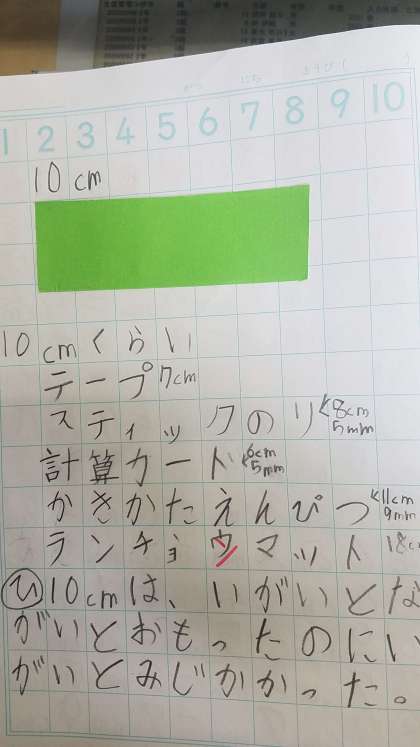 1 2 3 4 5 6 7 8 9 10
10cm
10cmくらい
テープ7cm
スティックのり8cm5mm
計算カード6cm5mm
かきかたえんぴつ11cm9mm
ランチョウマット18c
ひ10cmは、いがいとな
がいとおもったのにい
がいとみじかかった。